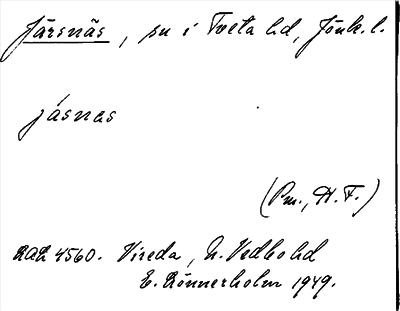 Järsnäs, sn i Tveta hd, Jönk. l.
jásnas
(Pm., H. F.)
ULMA 4560. Vireda, N. Vedbo hd
E. Rönnerholm 1949.